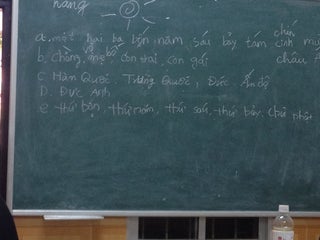 năng
a. một hai ba bốn năm sáu bảy tám chín
b. chồng vợ mẹ bố con trai, con gái châu
C. Hàn Quốc, Trung Quốc, Đức Ấn độ
D. Đức Anh
e thứ bốn, thứ năm, thứ sáu, thứ bảy, chủ nhật